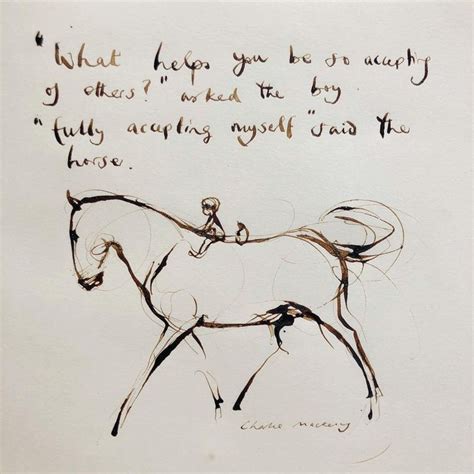 "What helps you be so accepting
of others?" asked the boy.
"fully accepting myself" said the
horse.
Charlie Mackesy